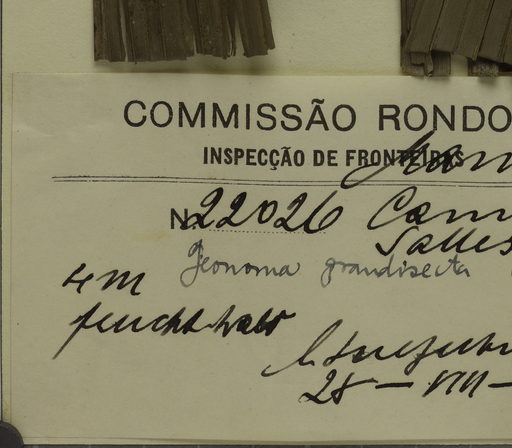 COMMISSÃO RONDO
INSPECÇÃO DE FRONTEIRAS
No. 22026
Salles
Geonoma grandisecta
4 m
feuchtwald
28 - VIII -